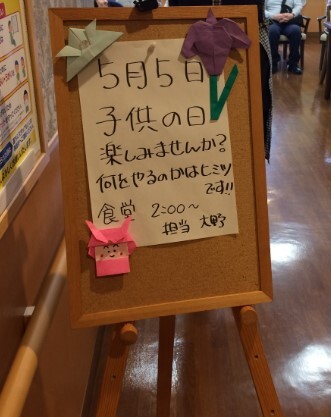 5月5日
子供の日
楽しみませんか?
何をやるのかはヒミツ
です!!
食堂 2:00〜
担当 大野